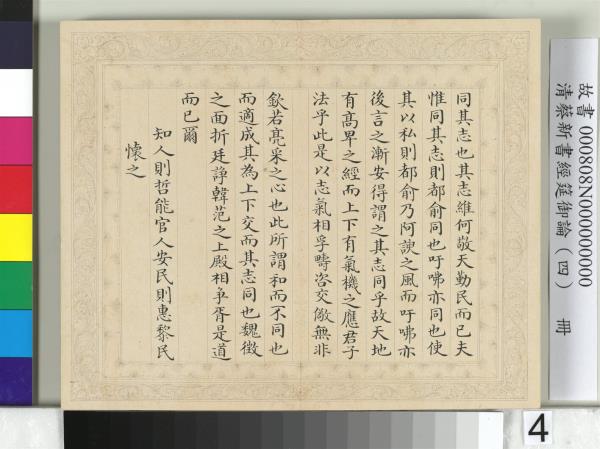 同其志也其志維何敬天勤民而已夫
惟同其志則都俞同也吁咈亦同也使
其以私則都俞乃阿諛之風而吁咈亦
後言之漸安得謂之其志同乎故天地
有高卑之經而上下有氣機之應君子
法乎此是以志氣相孚疇咨交儆無非
欽若亮采之心也此所謂和而不同也
而適成其為上下交而其志同也魏徵
之面折廷諍韓范之上殿相爭胥是道
而已爾
知人則哲能官人安民則惠黎民
懷之
故書000808N000000000
清蔡新書經筵御論(四) 冊
4